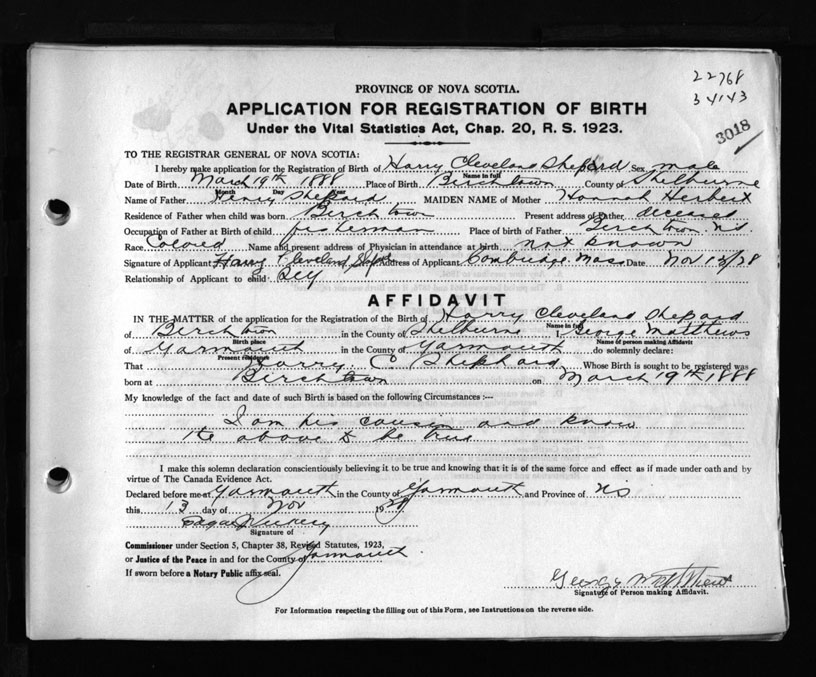 22768
34143
3018
PROVINCE OF NOVA SCOTIA.
APPLICATION FOR REGISTRATION OF BIRTH
Under the Vital Statistics Act, Chap. 20, R. S. 1923.
TO THE REGISTRAR GENERAL OF NOVA SCOTIA:
I hereby make application for the Registration of Birth of Harry Cleveland Shepard Sex male
Name in full
Date of Birth March 19th 1888 Place of Birth Birchtown County of Shelburne
Month Day Year
Name of Father Henry Shepard MAIDEN NAME of Mother Hannah Herbert
Residence of Father when child was born Birchtown Present address of Father deceased
Occupation of Father at Birth of child fisherman Place of birth of Father Birchtown N.S.
Race Colored Name and present address of Physician in attendance at birth not known
Signature of Applicant Harry Cleveland Address of Applicant Cambridge Mass Date Nov 13/28
Relationship of Applicant to child
AFFIDAVIT
IN THE MATTER of the application for the Registration of the Birth of Harry Cleveland Shepard
Name in full
of Birchtown in the County of Shelburne I, George Matthews
Birth place Name of person making Affidavit
of Yarmouth in the County of Yarmouth do solemnly declare:
Present residence
That Harry C Shephard Whose Birth is sought to be registered was
born at Birchtown on March 19th 1888
My knowledge of the fact and date of such Birth is based on the following Circumstances :---
I am his cousin and know
the above to be true
I make this solemn declaration conscientiously believing it to be true and knowing that it is of the same force and effect as if made under oath and by
virtue of The Canada Evidence Act.
Declared before me at Yarmouth in the County of Yarmouth and Province of NS
this 13 day of Nov 1928
Signature of
Commissioner under Section 5, Chapter 38, Revised Statutes, 1923,
or Justice of the Peace in and for the County of Yarmouth
If sworn before a Notary Public affix seal.
George Matthews
Signature of Person making Affidavit.
For Information respecting the filling out of this Form, see Instructions on the reverse side.